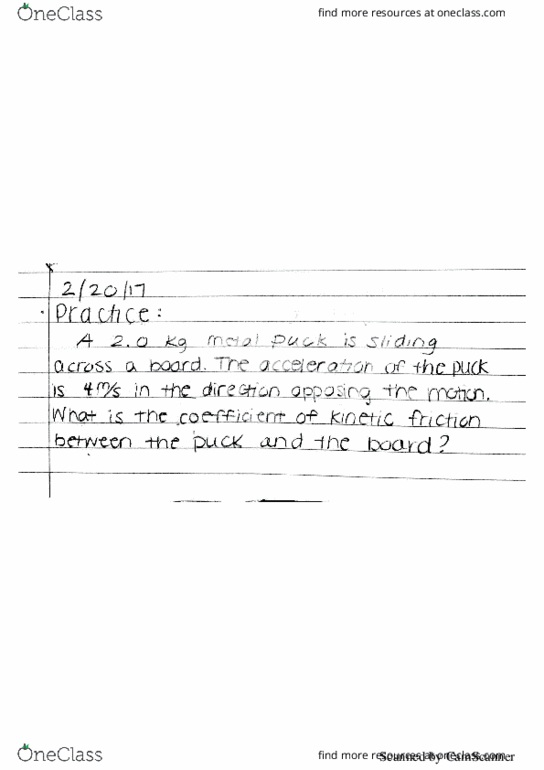 OneClass
find more resources at oneclass.com
2/20/17
Practice:
A 2.0 kg metal puck is sliding
across a board. The acceleration of the puck
is 4m/s in the direction opposing the motion.
What is the coefficient of kinetic friction
between the puck and the board?
OneClass
find more resources at oneclass.com
Scanned by CamScanner